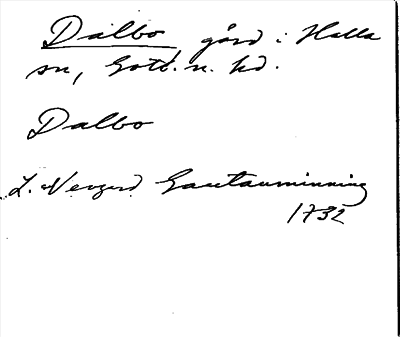 Dalbo, gård i Halla
sn, Gotl. n. hd.
Dalbo
L. Neogard Gautauminning
1732